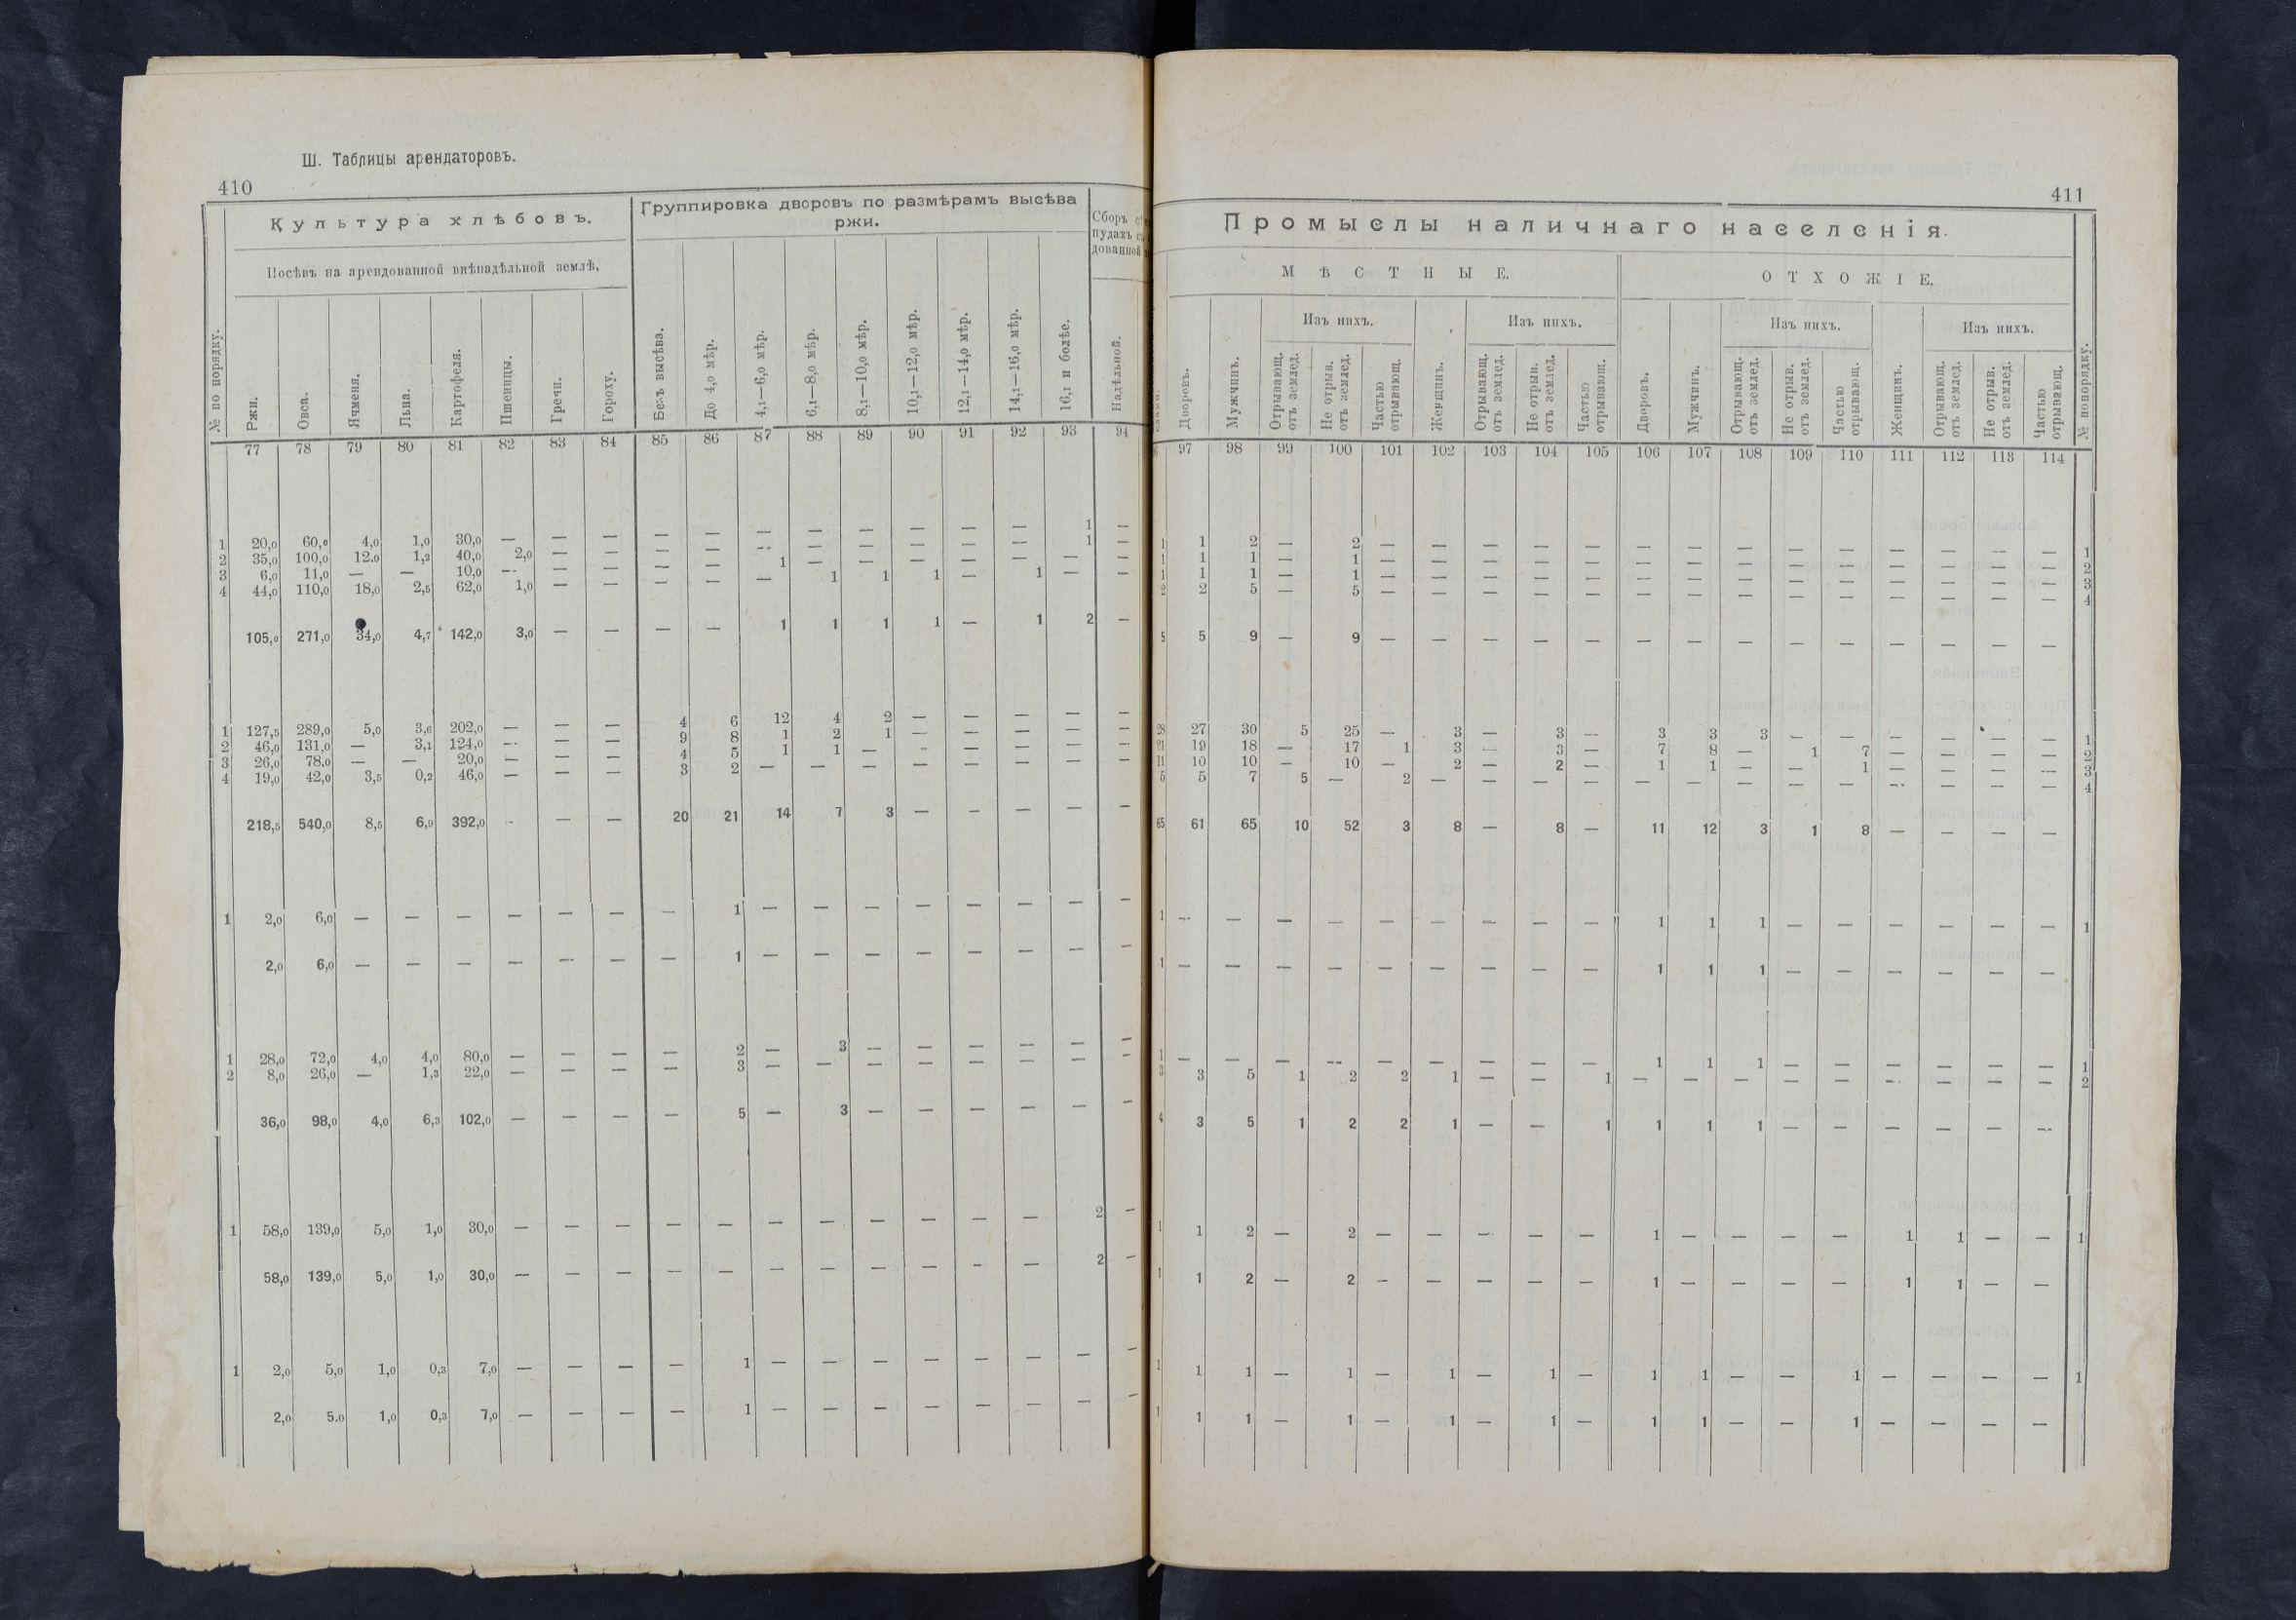 Ш. Таблицы арендаторовъ.
410
Культура хлѣбовъ.
Группировка дворовъ по размѣрамъ высѣва ржи.
Сборъ
пудахъ
дованной
Посѣвъ на арендованной внѣнадѣльной землѣ,
№ по порядку. Ржи. Овса. Ячменя. Льна. Картофеля. Пшеницы. Гречи. Гороху. Безъ высѣва. До 4,0 мѣр. 4,1—6,0 мѣр. 6,1—8,0 мѣр. 8,1—10,0 мѣр. 10,1—12,0 мѣр. 12,1—14,0 мѣр. 14,1—16,0 мѣр. 16,1 и болѣе. Надѣльной.
77 78 79 80 81 82 83 84 85 86 87 88 89 90 91 92 93 94
1 20,0 60,0 4,0 1,0 30,0 — — — — — — — — — — — 1 —
2 35,0 100,0 12,0 1,2 40,0 2,0 — — — — — — — — — — 1 —
3 6,0 11,0 — — 10,0 — — — — — 1 — — — — — — —
4 44,0 110,0 18,0 2,5 62,0 1,0 — — — — — 1 1 1 — 1 — —
105,0 271,0 34,0 4,7 142,0 3,0 — — — — 1 1 1 1 — 1 2 —
1 127,5 289,0 5,0 3,6 202,0 — — — 4 6 12 4 2 — — — — —
2 46,0 131,0 — 3,1 124,0 — — — 9 8 1 2 1 — — — — —
3 26,0 78,0 — — 20,0 — — — 4 5 1 1 — — — — — —
4 19,0 42,0 3,5 0,2 46,0 — — — 3 2 — — — — — — — —
218,5 540,0 8,5 6,9 392,0 — — — 20 21 14 7 3 — — — — —
1 2,0 6,0 — — — — — — — 1 — — — — — — — —
2,0 6,0 — — — — — — — 1 — — — — — — — —
1 28,0 72,0 4,0 4,0 80,0 — — — — 2 — 3 — — — — — —
2 8,0 26,0 — 1,3 22,0 — — — — 3 — — — — — — — —
36,0 98,0 4,0 6,3 102,0 — — — — 5 — 3 — — — — — —
1 58,0 139,0 5,0 1,0 30,0 — — — — — — — — — — — 2 —
58,0 139,0 5,0 1,0 30,0 — — — — — — — — — — — 2 —
1 2,0 5,0 1,0 0,3 7,0 — — — — 1 — — — — — — — —
2,0 5,0 1,0 0,3 7,0 — — — — 1 — — — — — — — —
411
Промыслы наличнаго населенія.
МѢСТНЫЕ.
ОТХОЖІЕ.
Изъ нихъ. Изъ нихъ. Изъ нихъ. Изъ нихъ.
Дворовъ. Мужчинъ. Отрывающ. отъ землед. Не отрыв. отъ землед. Частью отрывающ. Женщинъ. Отрывающ. отъ землед. Не отрыв. отъ землед. Частью отрывающ. Дворовъ. Мужчинъ. Отрывающ. отъ землед. Не отрыв. отъ землед. Частью отрывающ. Женщинъ. Отрывающ. отъ землед. Не отрыв. отъ землед. Частью отрывающ. № попорядку.
97 98 99 100 101 102 103 104 105 106 107 108 109 110 111 112 113 114
1 1 2 — 2 — — — — — — — — — — — — — — 1
1 1 1 — 1 — — — — — — — — — — — — — — 2
1 1 1 — 1 — — — — — — — — — — — — — — 3
2 2 5 — 5 — — — — — — — — — — — — — — 4
5 5 9 — 9 — — — — — — — — — — — — — —
28 27 30 5 25 — 3 — 3 — 3 3 3 — — — — — — 1
21 19 18 — 17 1 3 — 3 — 7 8 — 1 7 — — — — 2
11 10 10 — 10 — 2 — 2 — 1 1 — — 1 — — — — 3
5 5 7 5 — 2 — — — — — — — — — — — — — 4
65 61 65 10 52 3 8 — 8 — 11 12 3 1 8 — — — —
1 — — — — — — — — — 1 1 1 — — — — — — 1
1 — — — — — — — — — 1 1 1 — — — — — —
1 — — — — — — — — — 1 1 1 — — — — — — 1
3 3 5 1 2 2 1 — — 1 — — — — — — — — — 2
4 3 5 1 2 2 1 — — 1 1 1 1 — — — — — —
1 1 2 — 2 — — — — — 1 — — — — 1 1 — — 1
1 1 2 — 2 — — — — — 1 — — — — 1 1 — —
1 1 1 — 1 — 1 — 1 — 1 1 — — 1 — — — — 1
1 1 1 — 1 — 1 — 1 — 1 1 — — 1 — — — —